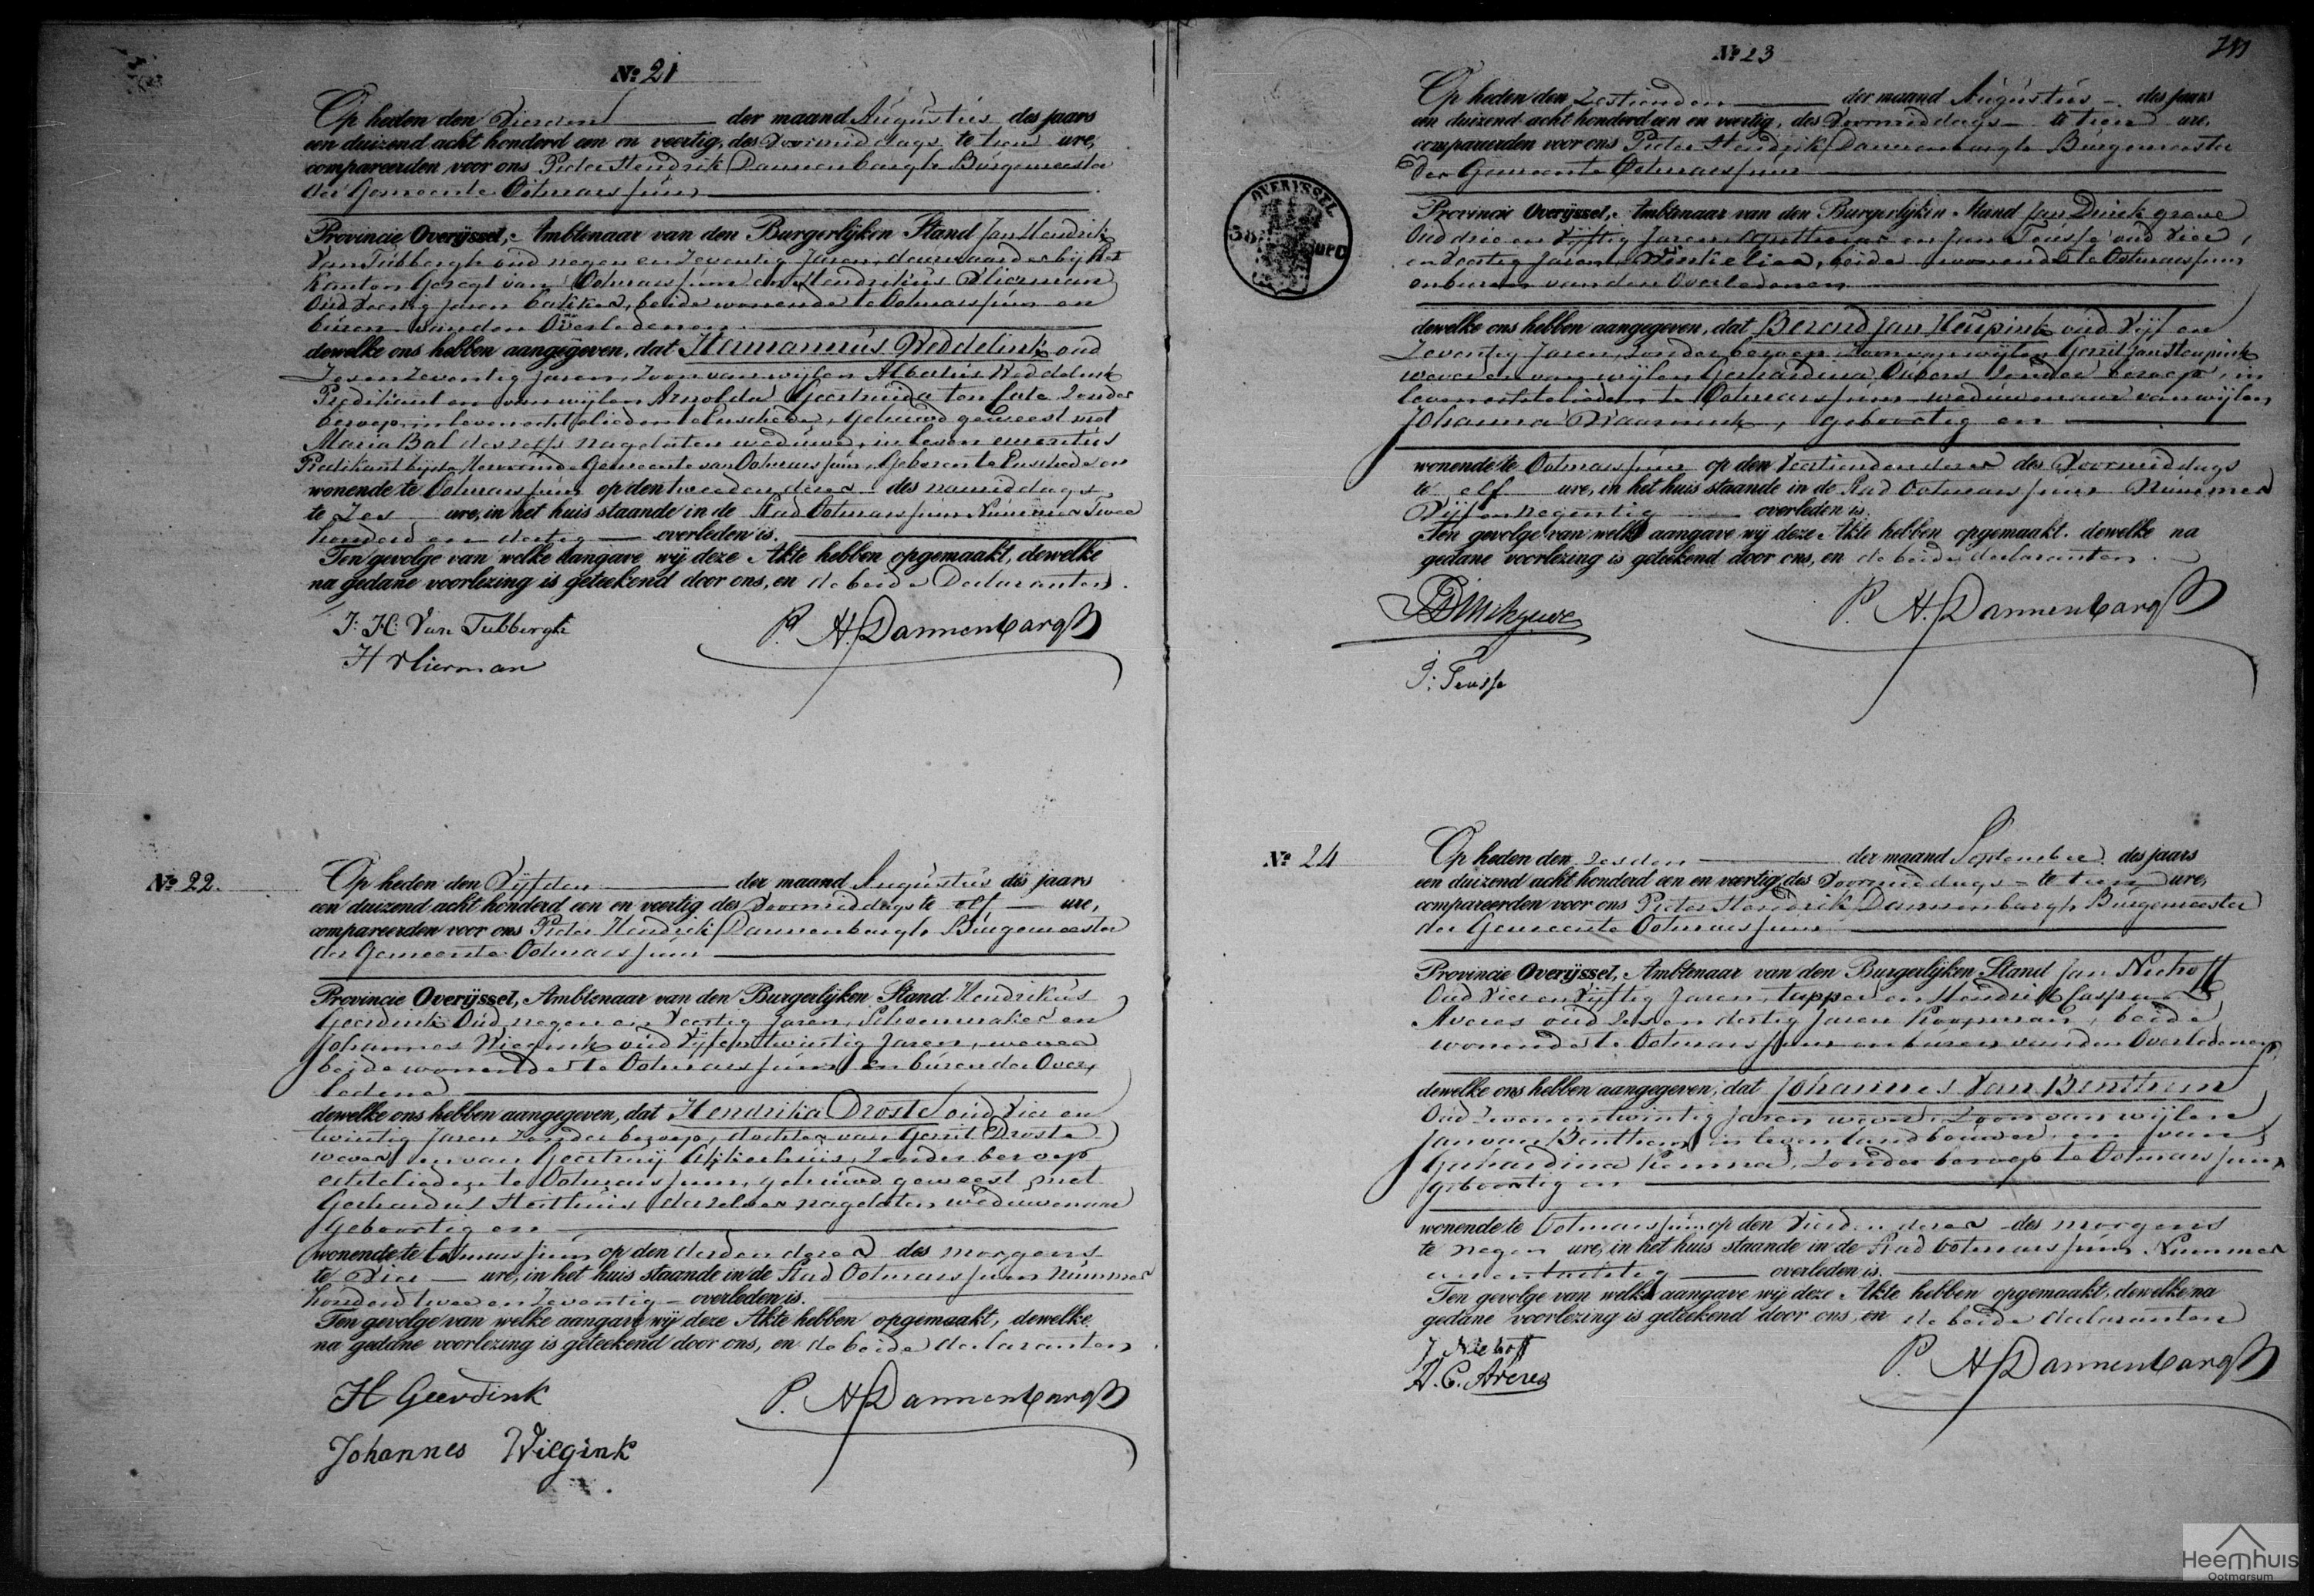 No 21
Op heden den Vierden der maand Augustus des jaars
een duizend acht honderd een en veertig, des Voormiddags te tien ure,
compareerden voor ons Pieter Hendrik Dannenbargh Burgemeester
der Gemeente Ootmarssum
Provincie Overijssel, Ambtenaar van den Burgerlijken Stand Jan Hendrik
Van Tubbergh oud negen en Zeventig Jaren, deurwaarder bij het
Kanton Geregt van Ootmarssum en Hendrikus Vlierman
Oud Veertig Jaren bakker, beide wonende te Ootmarssum en
buren van den Overledenen
dewelke ons hebben aangegeven, dat Hermannus Weddelink oud
Zes en Zeventig Jaren, Zoon van wijlen Albertus Weddelink
Predikant en van wijlen Arnolda Geertruida ten Cate Zonder
beroep, in leven echtelieden te Enschede, Gehuwd geweest met
Maria Bal deszelfs nagelaten weduwe, in leven emeritus
Predikant bij de Hervormde Gemeente van Ootmarssum, Geboren te Enschede en
wonende te Ootmarssum op den tweeden dezer des namiddags
te Zes ure, in het huis staande in de Stad Ootmarssum Nummer Twee
honderd en dertig overleden is.
Ten gevolge van welke aangave wij deze Akte hebben opgemaakt, dewelke
na gedane voorlezing is geteekend door ons, en de beide Declaranten.
J: H: Van Tubbergh
P. H. Dannenbargh
H Vlierman
No 22.
Op heden den Vijfden der maand Augustus des jaars
een duizend acht honderd een en veertig des Voormiddags te elf ure,
compareerden voor ons Pieter Hendrik Dannenbargh Burgemeester
der Gemeente Ootmarssum
Provincie Overijssel, Ambtenaar van den Burgerlijken Stand Hendrikus
Geerdink Oud negen en Veertig Jaren, Schoenmaker en
Johannes Wiegink oud Vijfentwintig Jaren, wever
beide wonende te Ootmarssum en buren der Over,
ledene
dewelke ons hebben aangegeven, dat Hendrika Droste oud Vier en
twintig Jaren Zonder beroep, dochter van Gerrit Droste
wever en van Geertruij Zonder beroep
echtelieden te Ootmarssum, gehuwd geweest met
Gerhardus Heithuis derzelver nagelaten weduwenaar
Geboortig en
wonende te Ootmarssum op den derden dezer des morgens
te Vier ure, in het huis staande in de Stad Ootmarssum Nummer
honderd twee en Zeventig overleden is.
Ten gevolge van welke aangave wij deze Akte hebben opgemaakt, dewelke
na gedane voorlezing is geteekend door ons, en de beide declaranten.
H Geerdink
P. H Dannenbargh
Johannes Wiegink
No 23
OVERYSSEL
Op heden den Zestienden der maand Augustus des jaars
een duizend acht honderd een en veertig, des Voormiddags te tien ure,
compareerden voor ons Pieter Hendrik Dannenbargh Burgemeester
der Gemeente Ootmarssum
Provincie Overijssel, Ambtenaar van den Burgerlijken Stand Jan Dinckgreve
Oud drie en Vijftig Jaren apotheker en Jan Teusse oud Vier
en Veertig Jaren Winkelier, beide wonende te Ootmarssum
en buren van den Overledenen
dewelke ons hebben aangegeven, dat Berend Jan Heupink oud Vijf en
Zeventig Jaren, Zonder beroep, Zoon van wijlen Gerrit Jan Heupink
wever en van wijlen Gerhardina Zonder beroep, in
leven echtelieden te Ootmarssum weduwenaar van wijlen
Johanna, geboortig en
wonende te Ootmarssum op den Veertienden dezer des Voormiddags
te elf ure, in het huis staande in de Stad Ootmarssum Nummer
Vijf en Negentig overleden is.
Ten gevolge van welke aangave wij deze Akte hebben opgemaakt, dewelke na
gedane voorlezing is geteekend door ons, en de beide declaranten.
P. H. Dannenbargh
J: Teusse
No 24
Op heden den Zesden der maand September des jaars
een duizend acht honderd een en veertig, des Voormiddags te tien ure,
compareerden voor ons Pieter Hendrik Dannenbargh Burgemeester
der Gemeente Ootmarssum
Provincie Overijssel, Ambtenaar van den Burgerlijken Stand Jan Niehoff
Oud Vier en Vijftig Jaren, tapper en Hendrik Casper
Averes oud Zes en dertig Jaren Koopman, beide
wonende te Ootmarssum en buren van den Overledenen
dewelke ons hebben aangegeven, dat Johannes Van Benthem
Oud Zevenentwintig Jaren wever, Zoon van wijlen
Jan van Benthem in leven landbouwer en van
Gerhardina Zonder beroep te Ootmarssum
geboortig en
wonende te Ootmarssum op den Vierden dezer des morgens
te negen ure, in het huis staande in de Stad Ootmarssum Nummer
een en tachtig overleden is.
Ten gevolge van welke aangave wij deze Akte hebben opgemaakt, dewelke na
gedane voorlezing is geteekend door ons, en de beide declaranten
J Niehoff
P. H Dannenbargh
H. C. Averes
Heemhuis
Ootmarsum